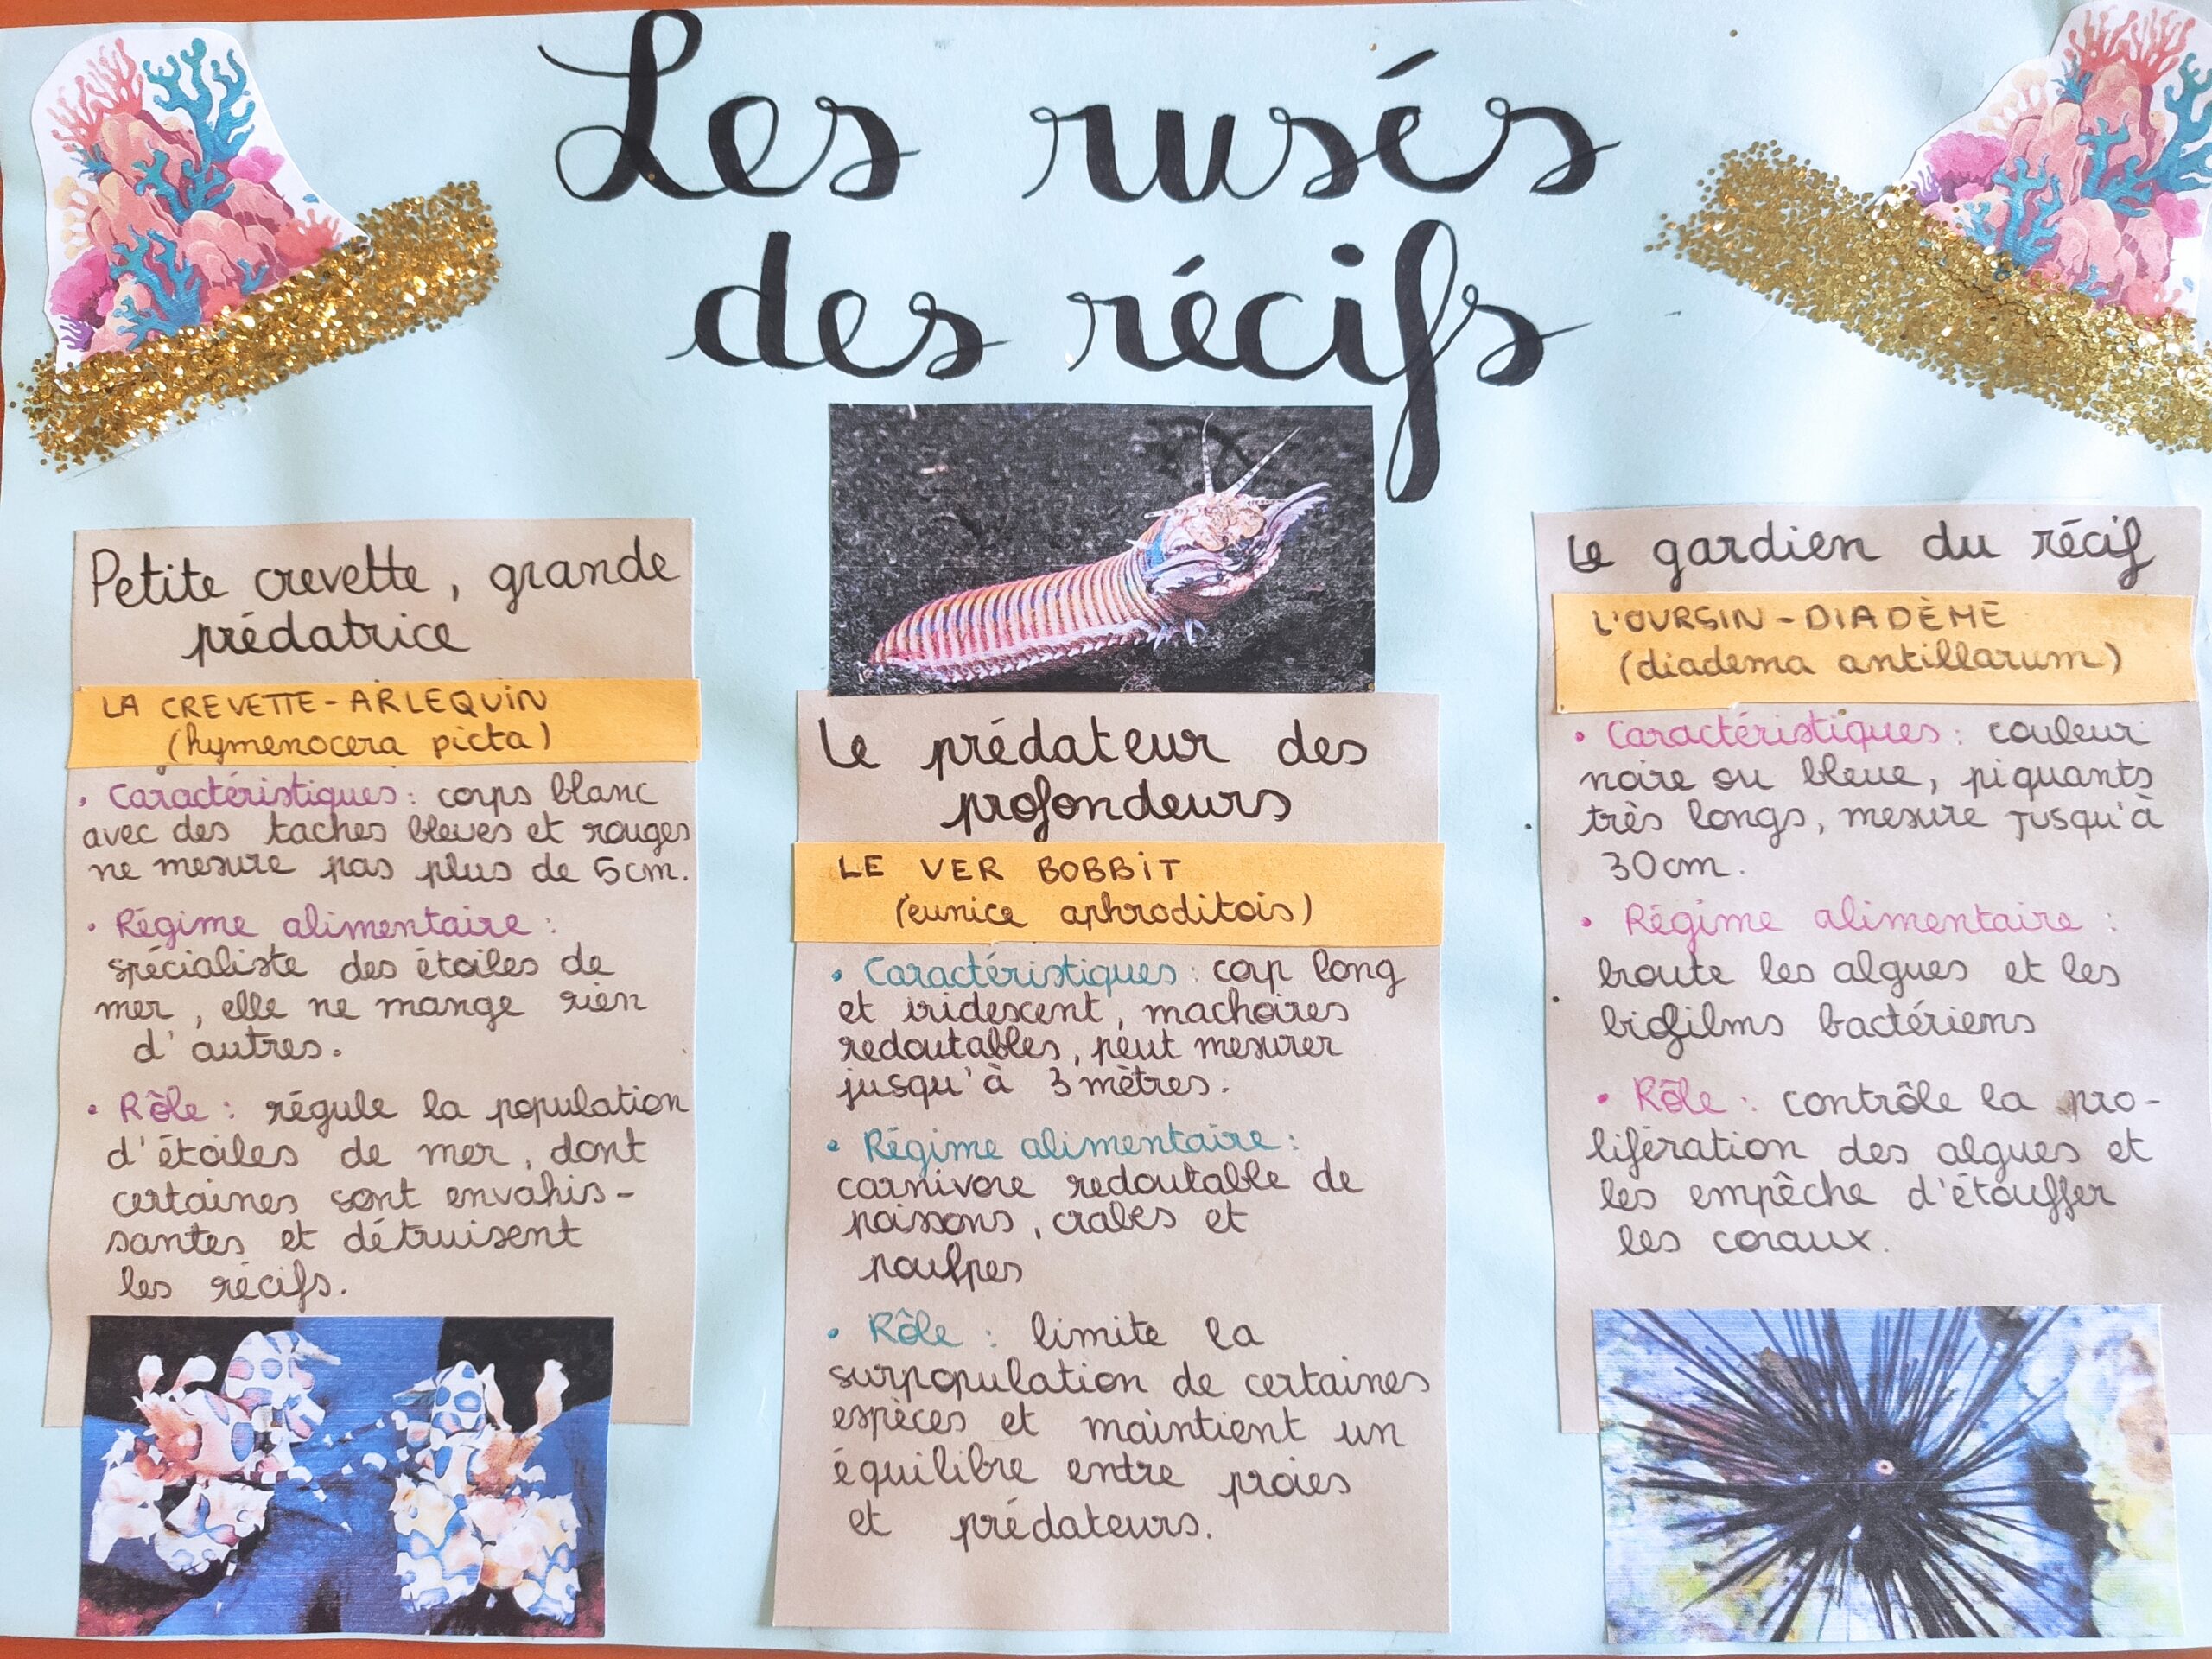 Les rusés
des récifs
Petite crevette, grande
prédatrice
LA CREVETTE-ARLEQUIN
(hymenocera picta)
• Caractéristiques : corps blanc
avec des taches bleues et rouges
ne mesure pas plus de 5cm.
• Régime alimentaire :
spécialiste des étoiles de
mer, elle ne mange rien
d'autres.
• Rôle : régule la population
d'étoiles de mer, dont
certaines sont envahis-
santes et détruisent
les récifs.
Le prédateur des
profondeurs
LE VER BOBBIT
(eunice aphroditois)
• Caractéristiques : corp long
et iridescent, machoires
redoutables, peut mesurer
jusqu'à 3 mètres.
• Régime alimentaire :
carnivore redoutable de
poissons, crabes et
poulpes
• Rôle : limite la
surpopulation de certaines
espèces et maintient un
équilibre entre proies
et prédateurs.
Le gardien du récif
L'OURSIN-DIADÈME
(diadema antillarum)
• Caractéristiques : couleur
noire ou bleue, piquants
très longs, mesure jusqu'à
30cm.
• Régime alimentaire :
broute les algues et les
biofilms bactériens
• Rôle : contrôle la pro-
lifération des algues et
les empêche d'étouffer
les coraux.